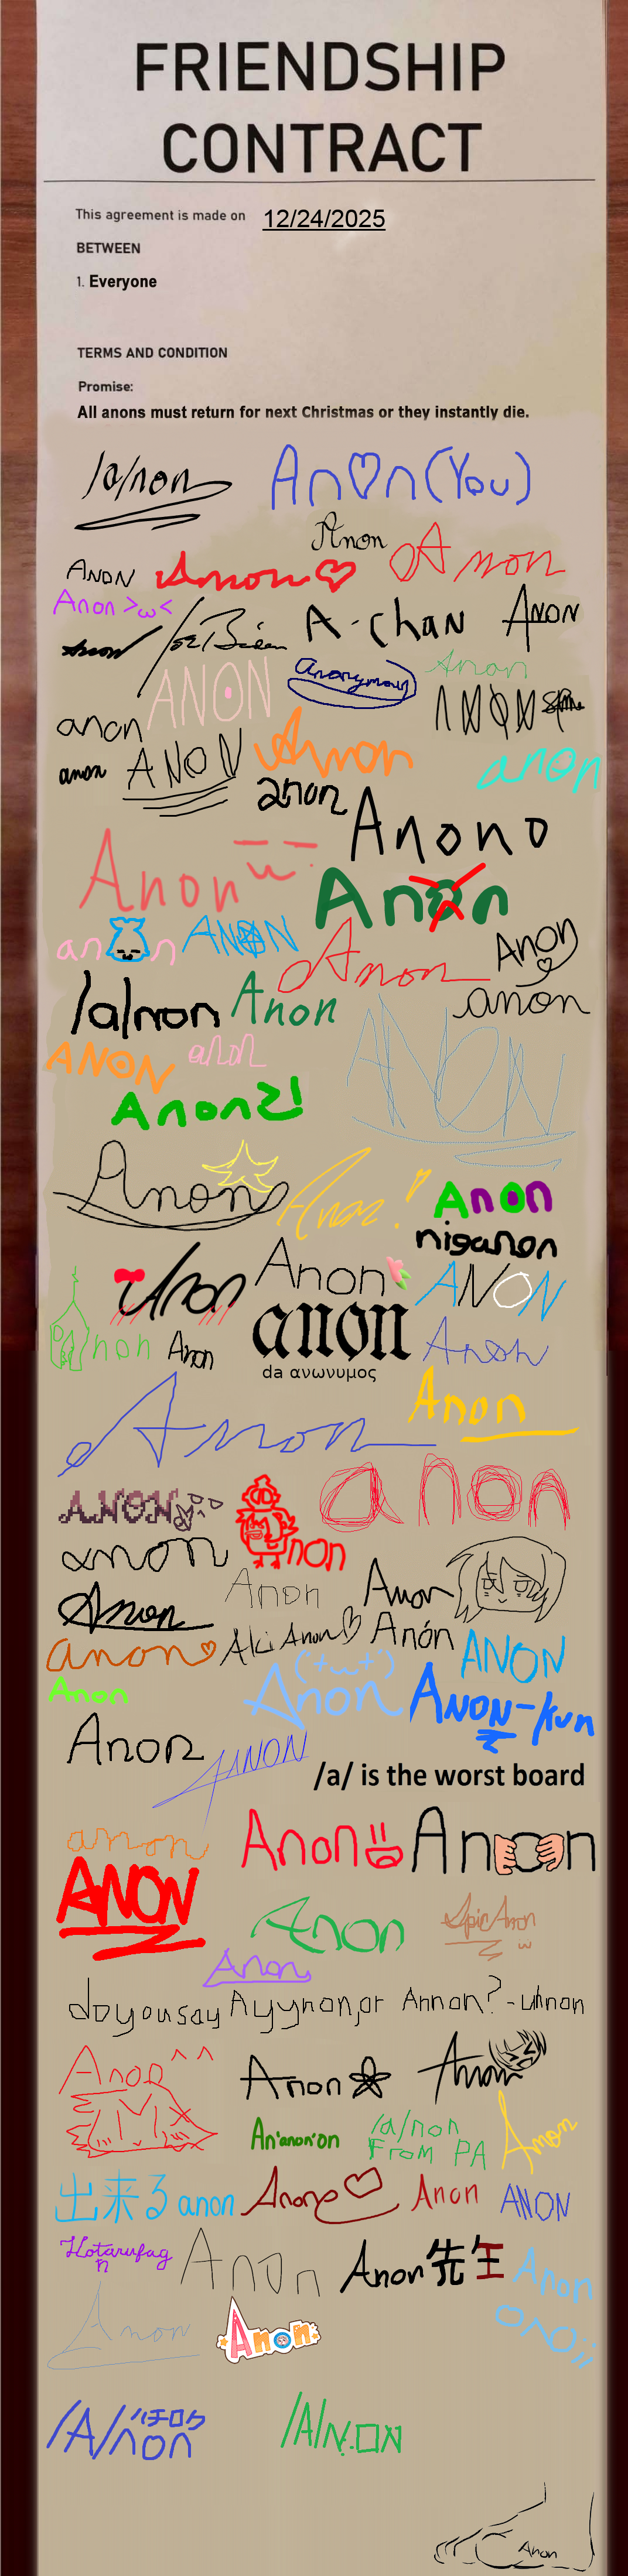 FRIENDSHIP
CONTRACT
This agreement is made on 12/24/2025
BETWEEN
1. Everyone
TERMS AND CONDITION
Promise:
All anons must return for next Christmas or they instantly die.
/a/non
An♡n (You)
Anon
Anon
Anon
Anon ♡
Anon >ω<
Anon
Joe Biden
A-chan
Anon
ANON
Anonymous
Anon
anon
ANON
anon
ANON
Anon
anon
anon
Anono
Anon
Anon
an n
ANON
Anon
Anon
/a/non
Anon
anon
ANON
anon
ANON
Anon
Anon
Anon
Anon
niganon
Anon
Anon
ANON
non
Anon
anon
da ανωνυμος
Anon
Anon
Anon
ANON
non
anon
anon
Anon
Anon
Anon
anon ♡
Aki Anon ♡
Anón
ANON
Anon
Anon
ANON-kun
Anon
ANON
/a/ is the worst board
anon
Anon
Anon
ANON
Anon
Epic Anon
Anon
do you say Ayynon, or Annon? - unnon
Anon ^^
Anon
Anon
An'anon'on
/a/non
FROM PA
Anon
出来る anon
Anon
Anon
ANON
Hotarufag
Anon
Anon先生
Anon
Anon
Anon
/A/non
/A/
Anon